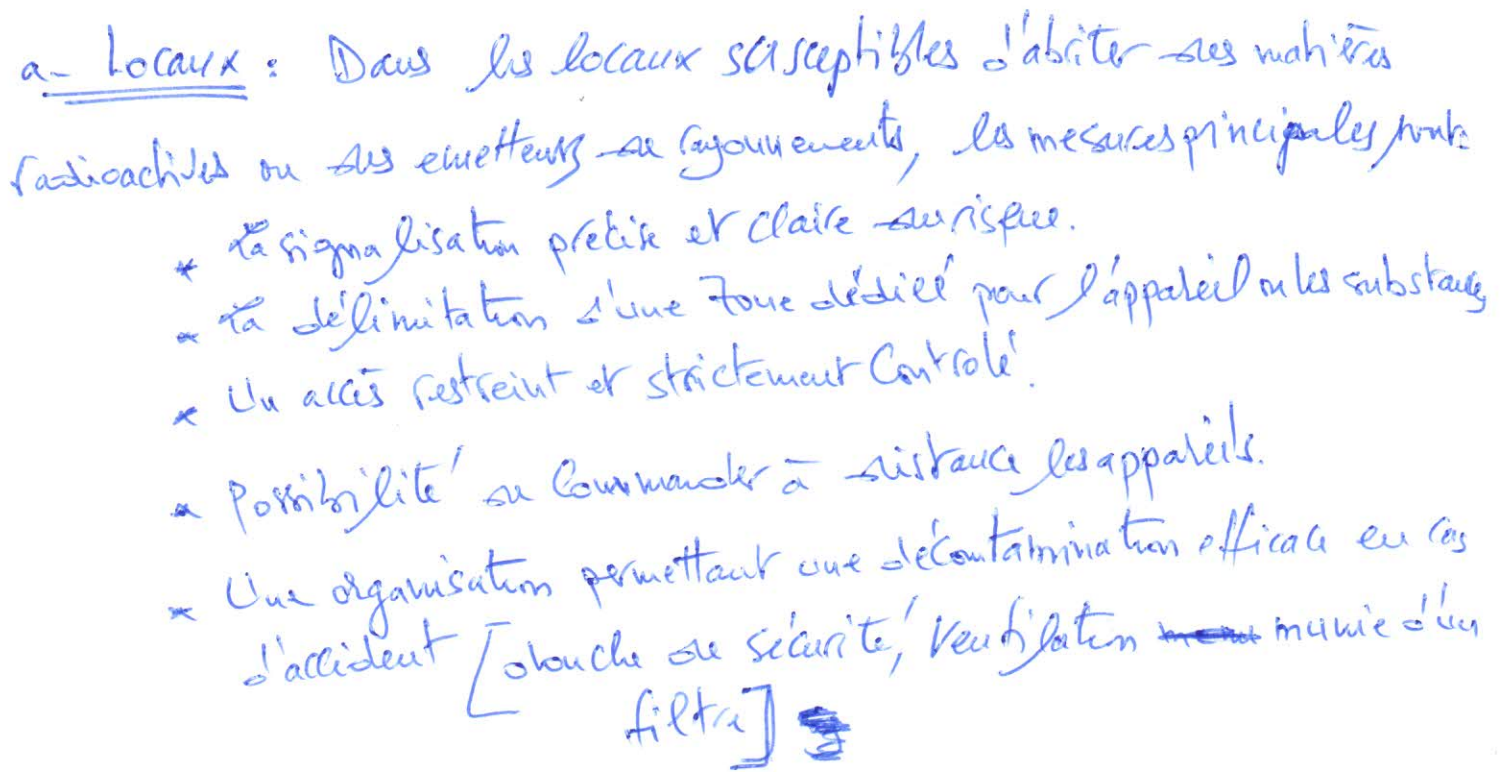 a- Locaux : Dans les locaux susceptibles d'abriter des matières
radioactives ou des emetteurs de rayonnements, les mesures principales sont:
* La signalisation précise et claire du risque.
* La délimitation d'une zone dédiée pour l'appareil ou les substances
* Un accès restreint et strictement Controlé.
* Possibilité de Commander à distance les appareils.
* Une organisation permettant une décontamination efficace en cas
d'accident [douche de sécurité, Ventilation munie d'un
filtre]